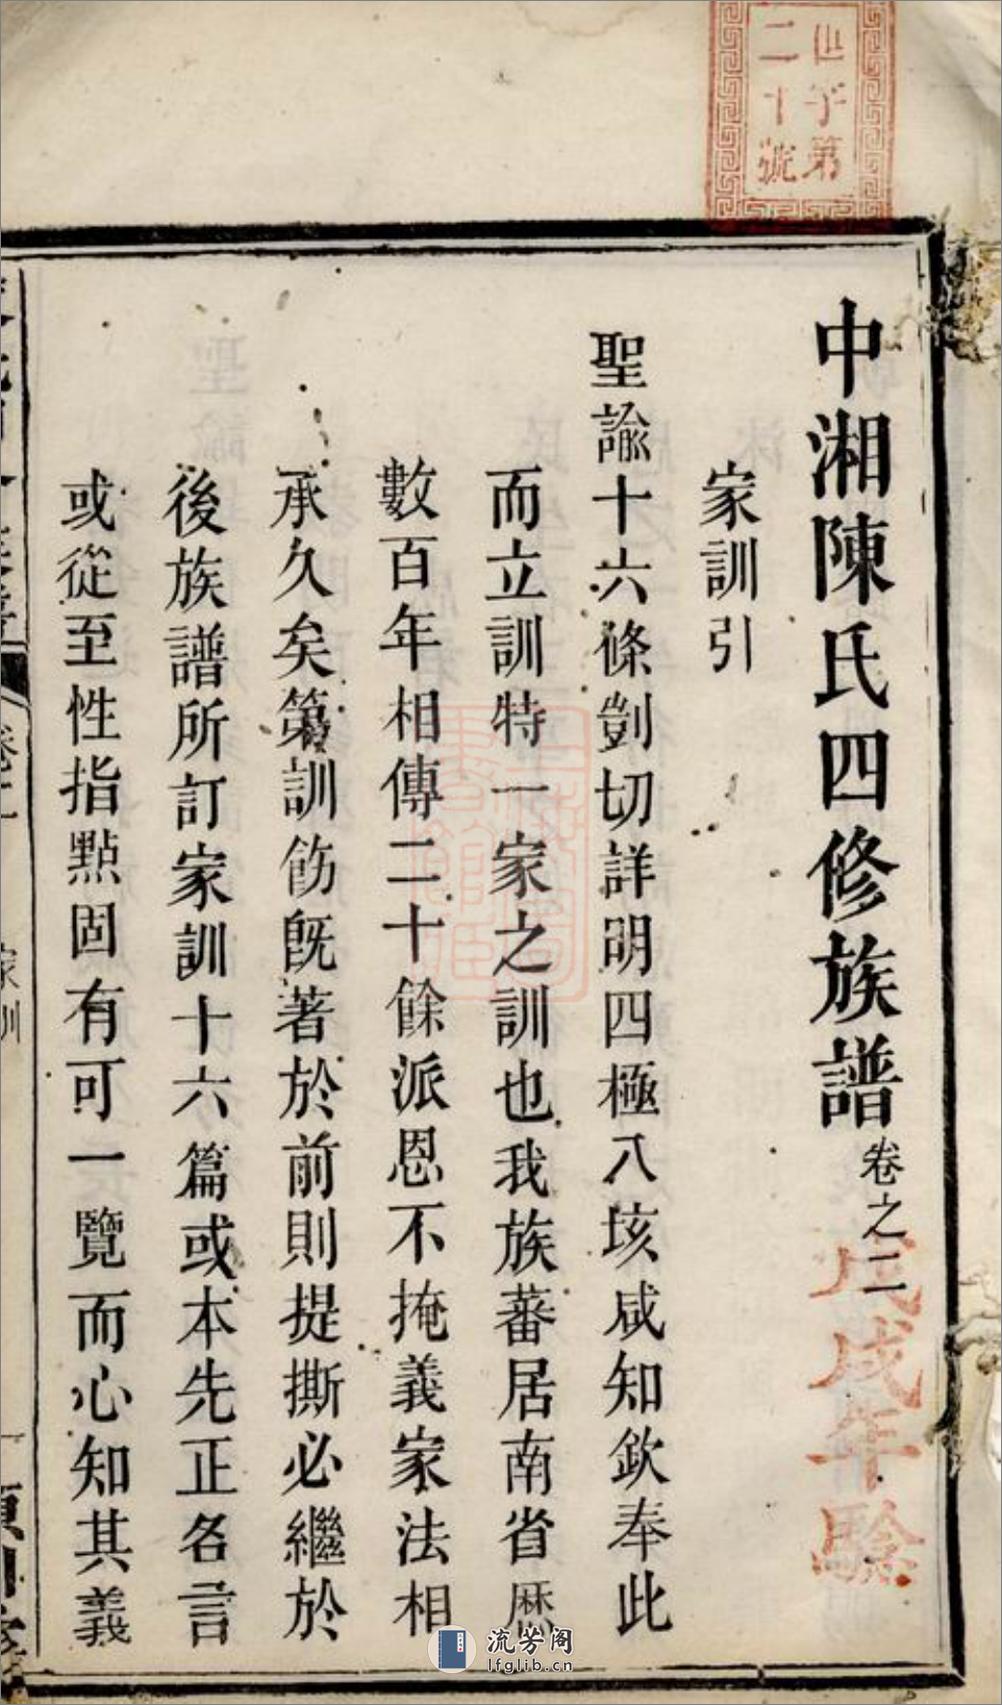 中湘陳氏四修族譜 卷之二
家訓引
聖諭十六條剴切詳明四極八垓咸知欽奉此
而立訓特一家之訓也我族蕃居南省歷
數百年相傳二十餘派恩不掩義家法相
承久矣第訓飭既著於前則提撕必繼於
後族譜所訂家訓十六篇或本先正各言
或從至性指點固有可一覽而心知其義
家訓
第
二十號
戊戌年驗
流芳阁
lfglib.cn